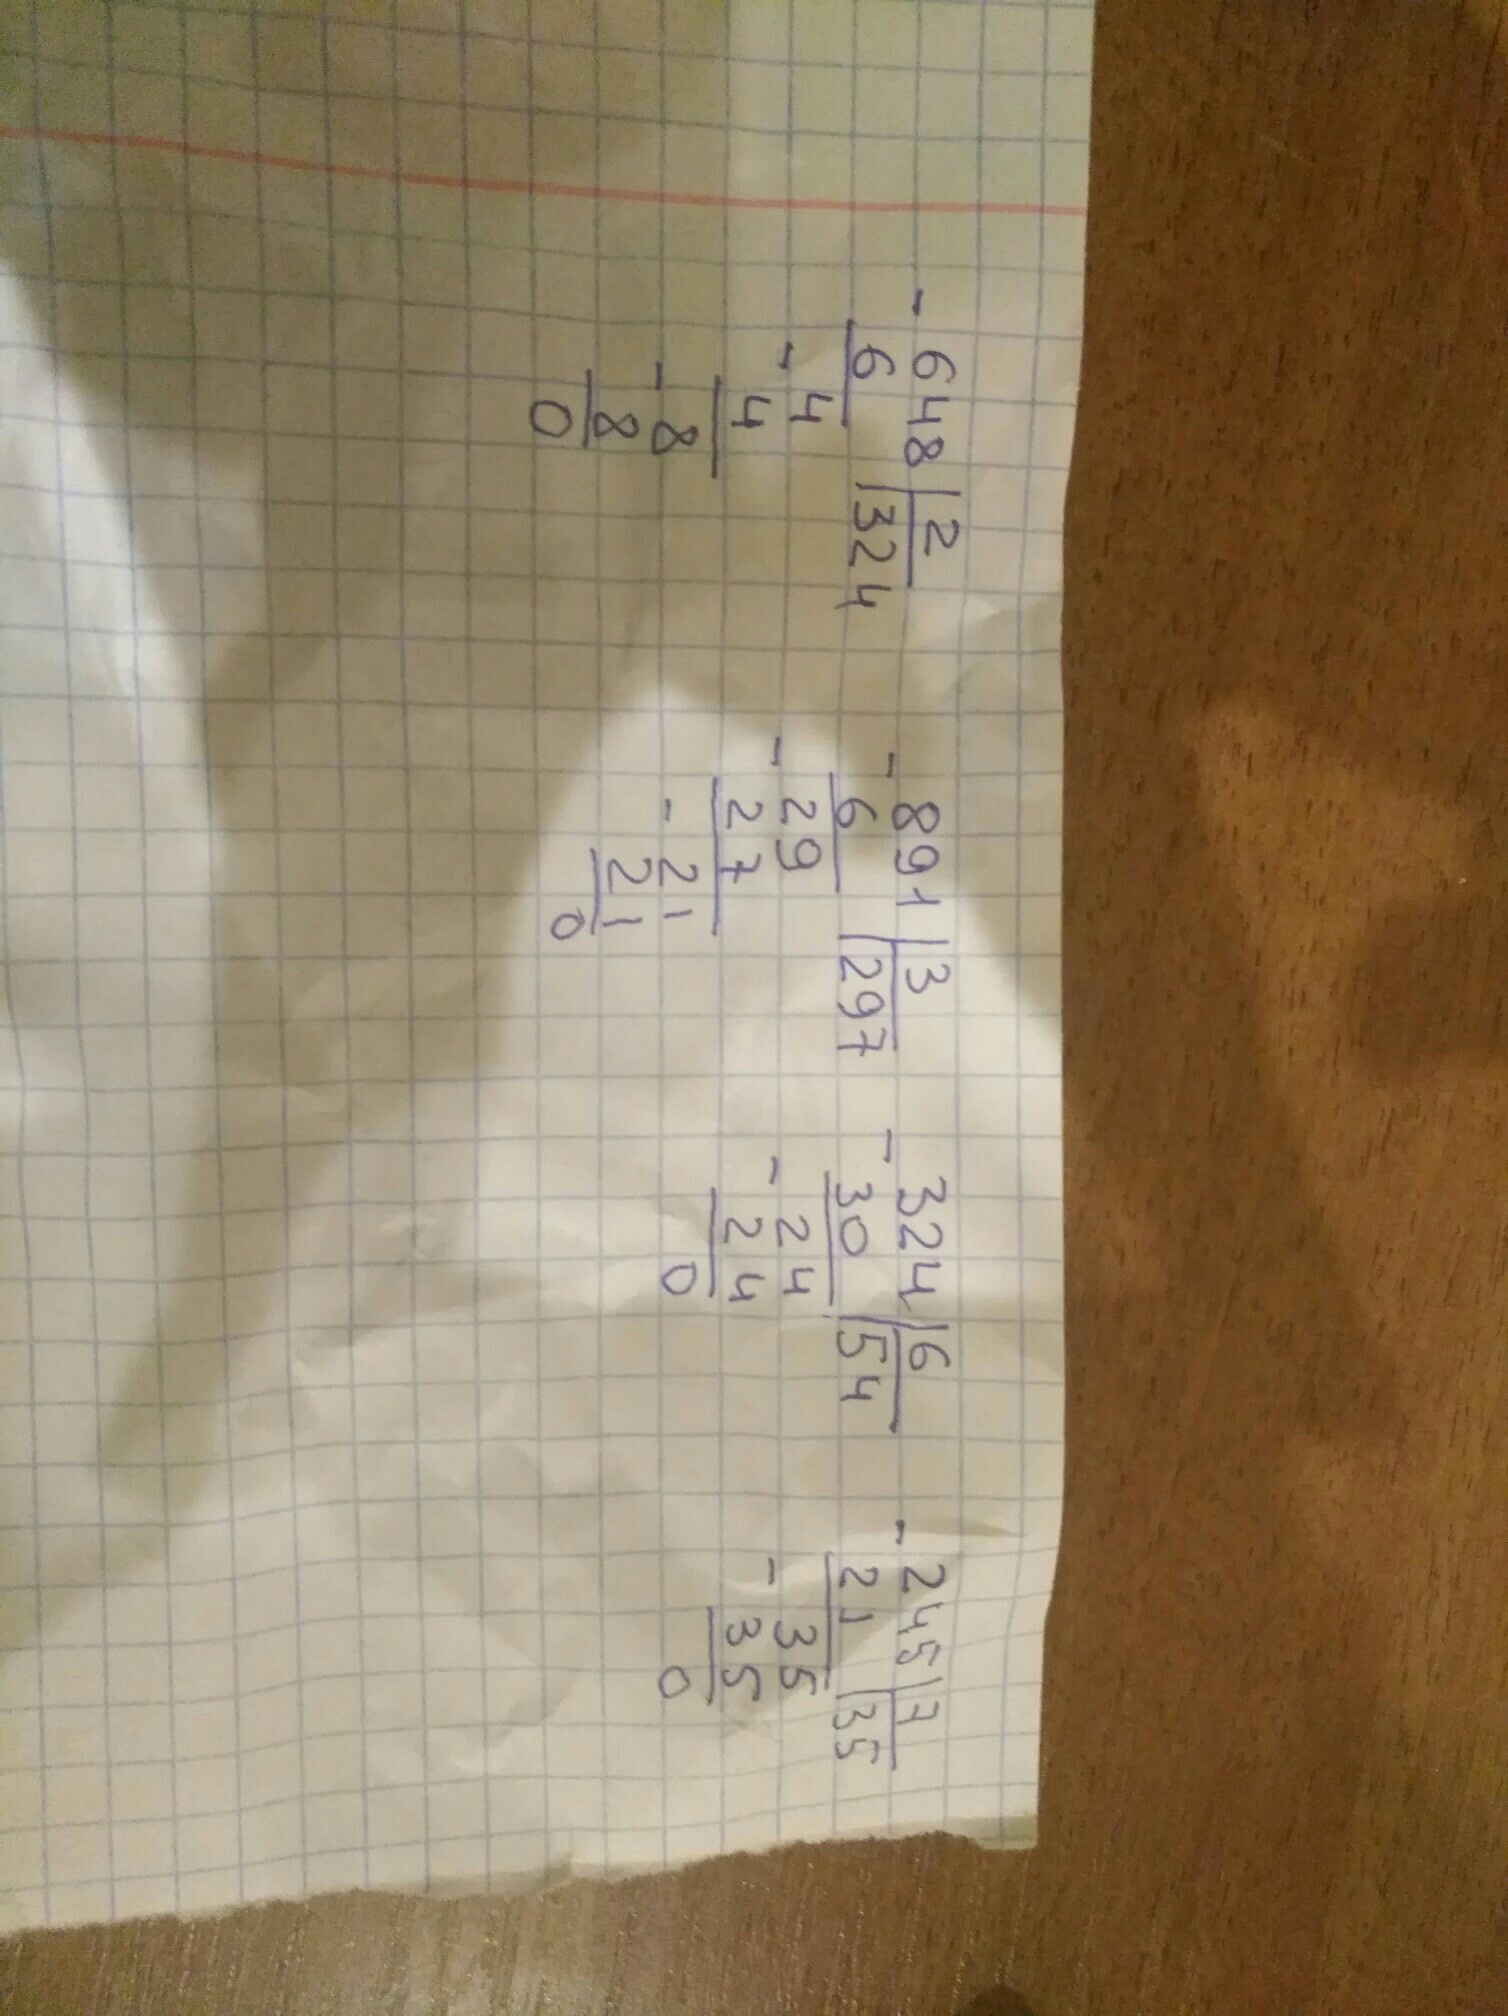 - 648 | 2
6 | 324
- 4
4
- 8
8
0
- 891 | 3
6 | 297
- 29
27
- 21
21
0
- 324 | 6
30 | 54
- 24
24
0
- 245 | 7
21 | 35
- 35
35
0